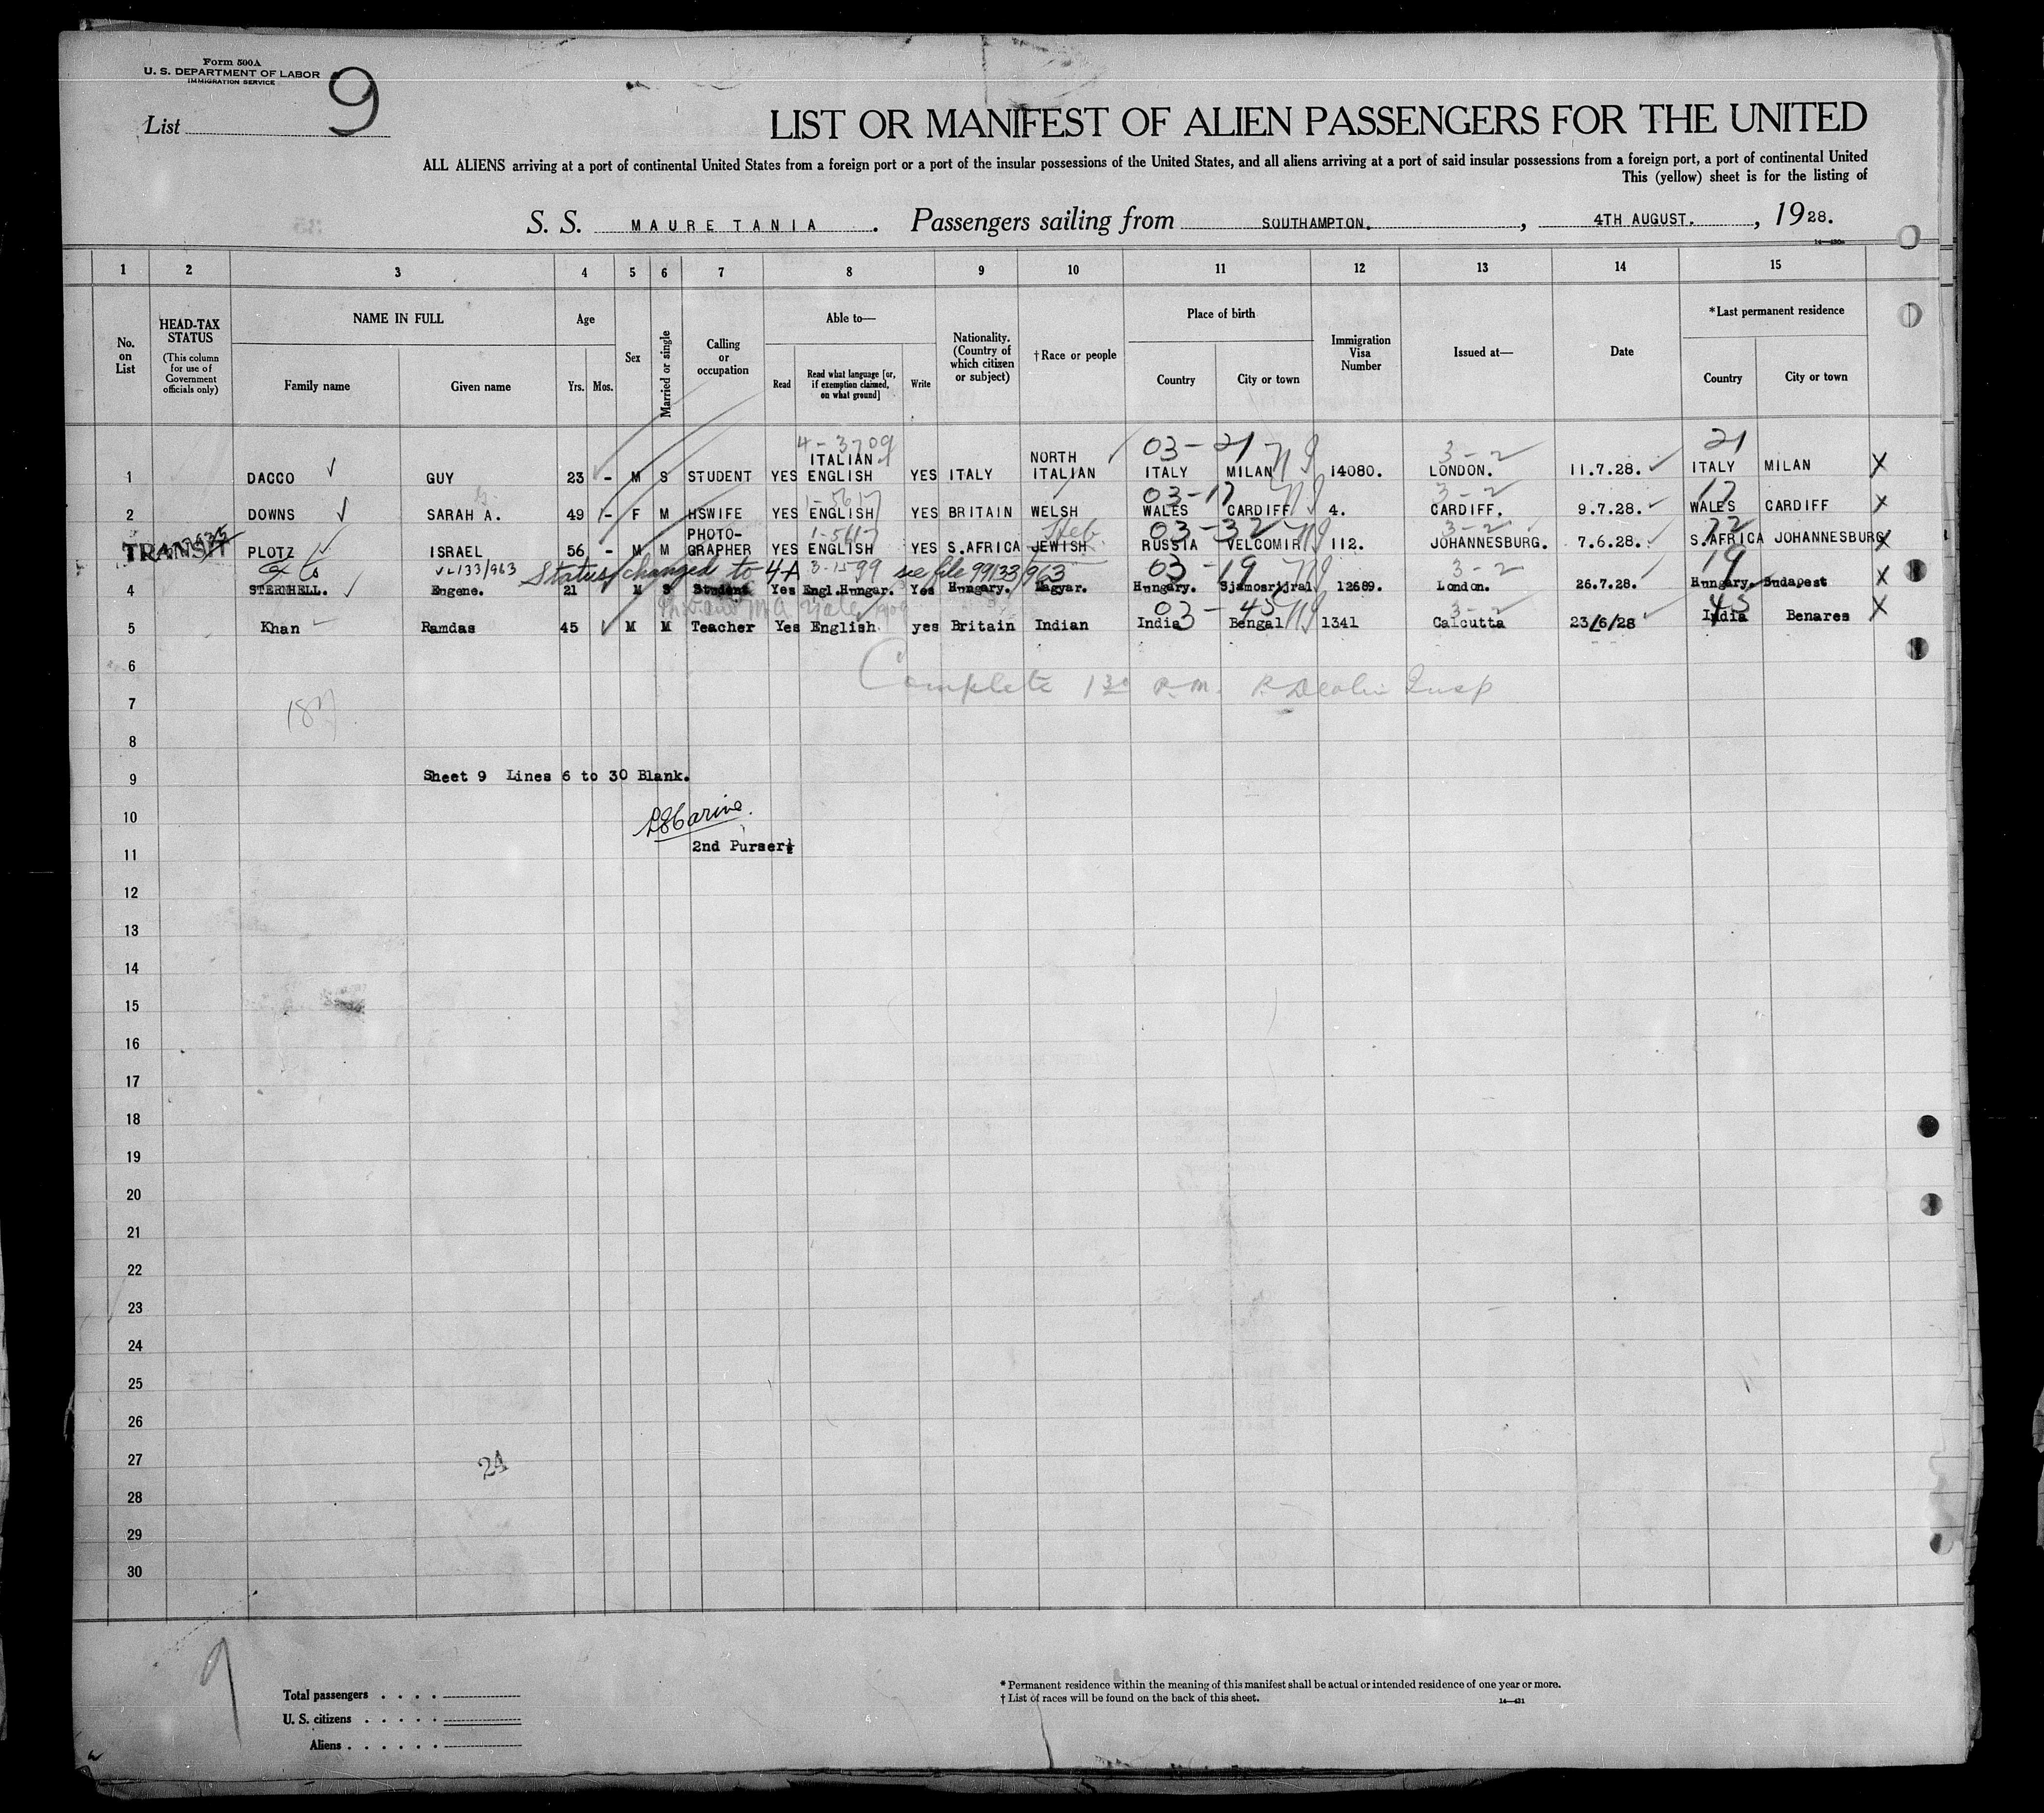 Form 500A
U. S. DEPARTMENT OF LABOR
IMMIGRATION SERVICE
List 9
LIST OR MANIFEST OF ALIEN PASSENGERS FOR THE UNITED
ALL ALIENS arriving at a port of continental United States from a foreign port or a port of the insular possessions of the United States, and all aliens arriving at a port of said insular possessions from a foreign port, a port of continental United
This (yellow) sheet is for the listing of
S. S. MAURETANIA. Passengers sailing from SOUTHAMPTON. , 4TH AUGUST. , 1928.
1 2 3 4 5 6 7 8 9 10 11 12 13 14 15
No. on List
HEAD-TAX STATUS (This column for use of Government officials only)
NAME IN FULL
Family name Given name
Age
Yrs. Mos.
Sex
Married or single
Calling or occupation
Able to—
Read
Read what language [or, if exemption claimed, on what ground]
Write
Nationality. (Country of which citizen or subject)
†Race or people
Place of birth
Country City or town
Immigration Visa Number
Issued at—
Date
*Last permanent residence
Country City or town
4-3709 03-21 3-2 21
1 DACCO GUY 23 - M S STUDENT YES ITALIAN ENGLISH YES ITALY NORTH ITALIAN ITALY MILAN 14080. LONDON. 11.7.28. ITALY MILAN X
03-17 3-2 17
2 DOWNS SARAH A. 49 - F M HSWIFE YES ENGLISH YES BRITAIN WELSH WALES CARDIFF 4. CARDIFF. 9.7.28. WALES CARDIFF X
1-5617 Heb 03-32 3-2 72
TRANSIT PLOTZ ISRAEL 56 - M M PHOTO-GRAPHER YES ENGLISH YES S.AFRICA JEWISH RUSSIA VELCOMIR 112. JOHANNESBURG. 7.6.28. S.AFRICA JOHANNESBURG X
Status changed to 4-A 3-1599 see file 99133/963 03-19 3-2 19
4 STERNHELL. Eugene. 21 M S Student Yes Engl.Hungar. Yes Hungary. Magyar. Hungary. 12689. London. 26.7.28. Hungary. Budapest X
03-45 3-2 45
5 Khan Ramdas 45 M M Teacher Yes English yes Britain Indian India Bengal 1341 Calcutta 23/6/28 India Benares X
6
Complete 1 30 P.M. Insp
7
187
8
9 Sheet 9 Lines 6 to 30 Blank.
10
11 2nd Purser
12
13
14
15
16
17
18
19
20
21
22
23
24
25
26
27 24
28
29
30
9
Total passengers . . . .
U. S. citizens . . . . .
Aliens . . . . . .
* Permanent residence within the meaning of this manifest shall be actual or intended residence of one year or more.
† List of races will be found on the back of this sheet. 14—431